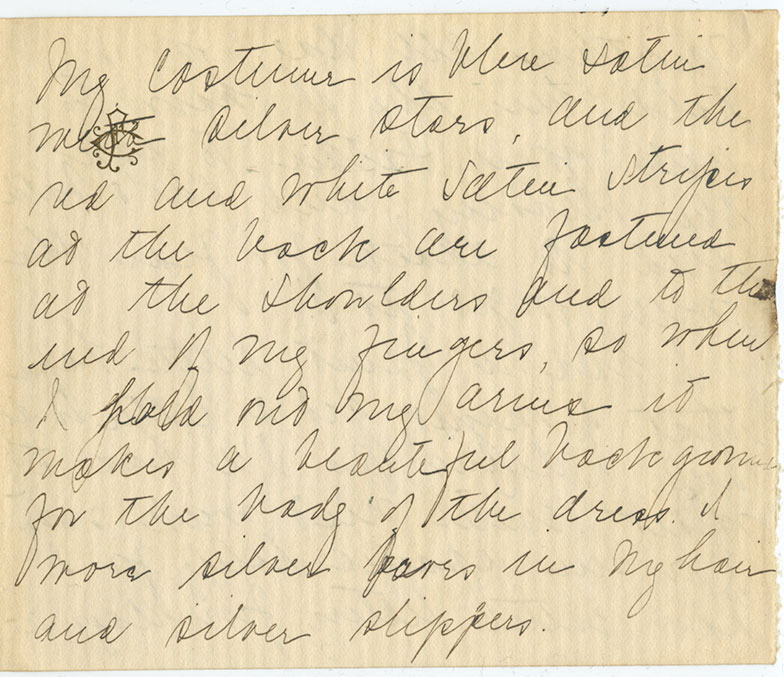 My costume is blue satin
with silver stars, and the
red and white satin stripes
at the back are fastened
at the shoulders and to the
end of my fingers, so when
I hold out my arms it
makes a beautiful background
for the body of the dress. I
wore silver in my hair
and silver slippers.